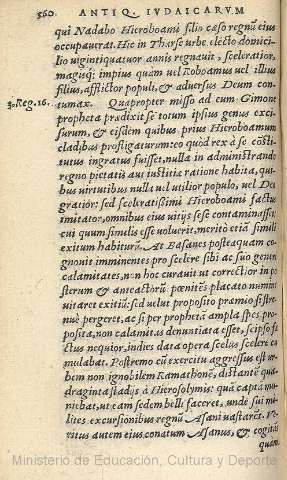 560 ANTIQ. IVDAICARVM
qui Nadabo Hieroboami filio cæso regnũ eius
occupauerat. Hic in Tharse urbe electo domici
lio uigintiquatuor annis regnauit, sceleratior,
magisq; impius quàm uel Roboamus uel illius
filius, afflictor populi, & aduersus Deum con
tumax. Quapropter misso ad eum Gimone
3. Reg. 16.
propheta prædixit se totum ipsius genus exci
surum, & eisdem quibus prius Hieroboamum
cladibus profligaturum: eo quòd rex à se cõsti
tutus ingratus fuisset, nulla in administrando
regno pietatis aut iustitiæ ratione habita, qui
bus uirtutibus nulla uel utilior populo, uel Deo
gratior: sed sceleratissimi Hieroboami factus
imitator, omnibus eius uitijs sese contaminasset:
cui quum similis esse voluerit, merito etiã similem
exitum habiturũ. At Basanes posteaquam co
gnouit imminentes pro scelere sibi ac suo generi
calamitates, non hoc curauit ut correctior in po
sterum & anteactorũ pœnitẽs placato numine
uitaret exitiũ: sed uelut proposito præmio si stre
nuè pergeret, ac si per prophetã ampla spes pro
posita, non calamitas denuntiata esset, seipso fa
ctus nequior, indies data opera scelus scelere cu
mulabat. Postremo cũ exercitu aggressus est ur
bem non ignobilem Ramathonẽ, distantẽ qua
draginta stadijs à Hierosolymis: quã captã mu
niebat, ut eam sedem belli faceret, unde sui mi
lites excursionibus regnũ Asani uastarẽt. Ve
ritus autem eius conatum Asanus, & cogitãs
quàm
Ministerio de Educación, Cultura y Deporte